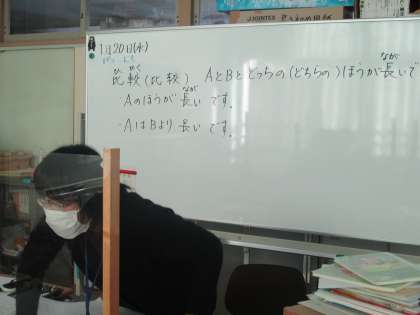 JOINTEX
1月20日(水)
ひかく
比較(比較) AとBとどっちの(どちらの)ほうが長いで
なが
Aのほうが長いです。
なが
・AはBより長いです。